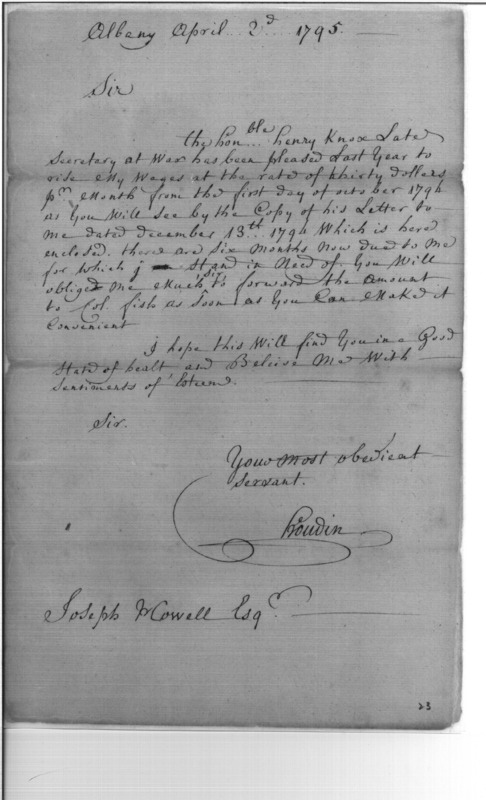 Albany April 2d 1795.
Sir
the honble henry Knox Late
Secretary at War has been pleased Last Year to
rise My Wages at the rate of thirty dollars
pr Month from the first day of october 1794
as You Will see by the Copy of his Letter to
me dated december 13th 1794 Which is here
enclosed. there are Six Months Now due to me
for which j Stand in Need of You Will
obliged me Much Sir to forward the amount
to Col. fish as Soon as You Can Maked it
Convenient
j hope this Will find You in a Good
State of healt and Belive Me With
Sentiments of Esteem.
Sir.
Your most obedient
servant.
houdin
Joseph Howell Esqr.
23